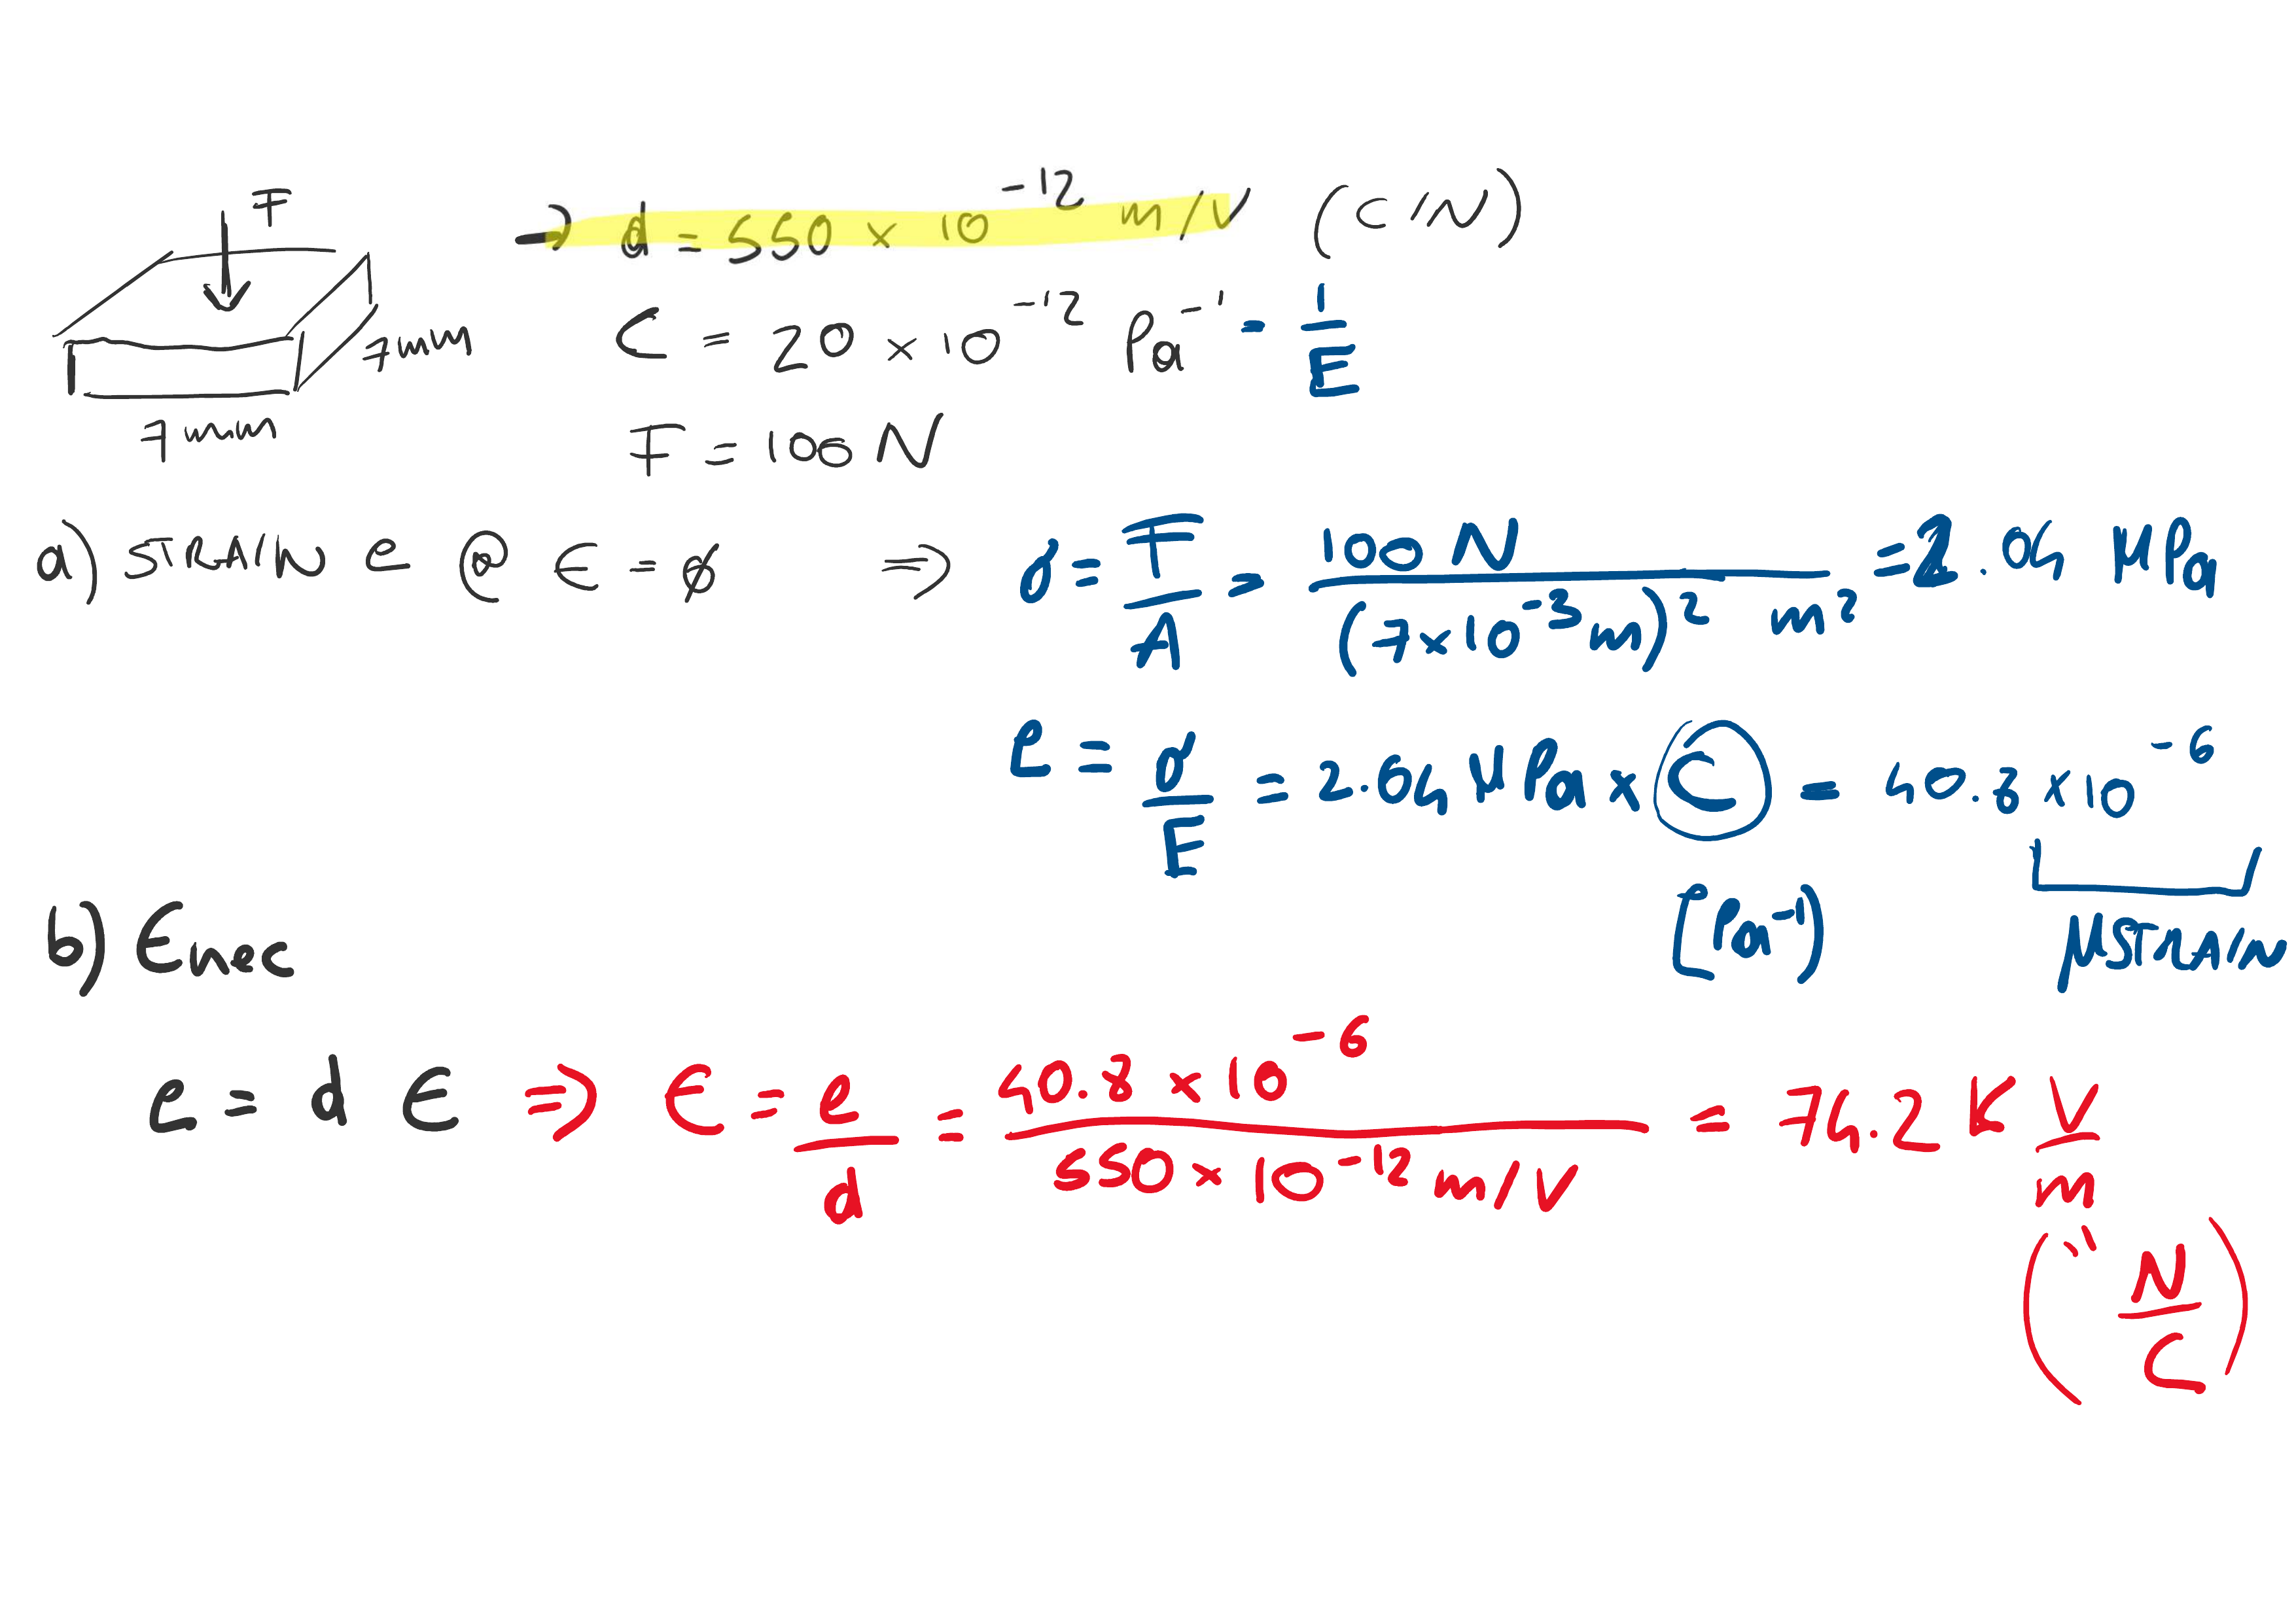 F
⇒ d = 550 × 10⁻¹² m/V (C/N)
7mm
7mm
C = 20 × 10⁻¹² Pa⁻¹ = 1/E
F = 100 N
a) STRAIN e @ ϵ = ø ⇒ σ = F/A = 100 N / (7×10⁻³ m)² m² = 2.04 MPa
e = σ/E = 2.04 MPa × C = 40.8 × 10⁻⁶
[Pa⁻¹)
μSTRAIN
b) ϵnec
e = d ϵ ⇒ ϵ = e/d = 40.8 × 10⁻⁶ / 550 × 10⁻¹² m/V = 74.2 K V/m
(" N/C)